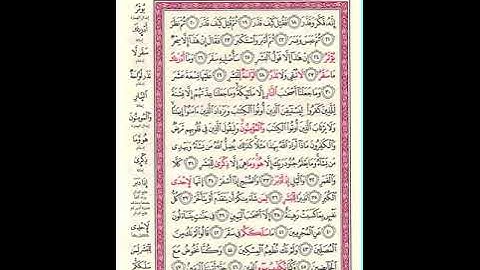 إِنَّهُۥ فَكَّرَ وَقَدَّرَ ١٨ فَقُتِلَ كَيْفَ قَدَّرَ ١٩ ثُمَّ قُتِلَ كَيْفَ قَدَّرَ ٢٠ ثُمَّ نَظَرَ
٢١ ثُمَّ عَبَسَ وَبَسَرَ ٢٢ ثُمَّ أَدْبَرَ وَٱسْتَكْبَرَ ٢٣ فَقَالَ إِنْ هَٰذَا إِلَّا سِحْرٌ
يُؤْثَرُ ٢٤ إِنْ هَٰذَا إِلَّا قَوْلُ ٱلْبَشَرِ ٢٥ سَأُصْلِيهِ سَقَرَ ٢٦ وَمَا أَدْرَىٰكَ
مَا سَقَرُ ٢٧ لَا تُبْقِي وَلَا تَذَرُ ٢٨ لَوَّاحَةٌ لِّلْبَشَرِ ٢٩ عَلَيْهَا تِسْعَةَ عَشَرَ
٣٠ وَمَا جَعَلْنَا أَصْحَٰبَ ٱلنَّارِ إِلَّا مَلَٰٓئِكَةً وَمَا جَعَلْنَا عِدَّتَهُمْ إِلَّا فِتْنَةً
لِّلَّذِينَ كَفَرُوا۟ لِيَسْتَيْقِنَ ٱلَّذِينَ أُوتُوا۟ ٱلْكِتَٰبَ وَيَزْدَادَ ٱلَّذِينَ ءَامَنُوٓا۟ إِيمَٰنًا
وَلَا يَرْتَابَ ٱلَّذِينَ أُوتُوا۟ ٱلْكِتَٰبَ وَٱلْمُومِنُونَ وَلِيَقُولَ ٱلَّذِينَ فِي قُلُوبِهِم مَّرَضٌ
وَٱلْكَٰفِرُونَ مَاذَا أَرَادَ ٱللَّهُ بِهَٰذَا مَثَلًا كَذَٰلِكَ يُضِلُّ ٱللَّهُ مَن يَشَاءُ وَيَهْدِي
مَن يَشَاءُ وَمَا يَعْلَمُ جُنُودَ رَبِّكَ إِلَّا هُوَ وَمَا هِيَ إِلَّا ذِكْرَىٰ لِلْبَشَرِ ٣١ كَلَّا
وَٱلْقَمَرِ ٣٢ وَٱلَّيْلِ إِذْ أَدْبَرَ ٣٣ وَٱلصُّبْحِ إِذَا أَسْفَرَ ٣٤ إِنَّهَا لَإِحْدَى
ٱلْكُبَرِ ٣٥ نَذِيرًا لِّلْبَشَرِ ٣٦ لِمَن شَاءَ مِنكُمْ أَن يَتَقَدَّمَ أَوْ يَتَأَخَّرَ ٣٧ كُلُّ
نَفْسٍ بِمَا كَسَبَتْ رَهِينَةٌ ٣٨ إِلَّا أَصْحَٰبَ ٱلْيَمِينِ ٣٩ فِي جَنَّٰتٍ يَتَسَاءَلُونَ
٤٠ عَنِ ٱلْمُجْرِمِينَ ٤١ مَا سَلَكَكُمْ فِي سَقَرَ ٤٢ قَالُوا۟ لَمْ نَكُ مِنَ
ٱلْمُصَلِّينَ ٤٣ وَلَمْ نَكُ نُطْعِمُ ٱلْمِسْكِينَ ٤٤ وَكُنَّا نَخُوضُ مَعَ
ٱلْخَائِضِينَ ٤٥ وَكُنَّا نُكَذِّبُ بِيَوْمِ ٱلدِّينِ ٤٦ حَتَّىٰ أَتَىٰنَا ٱلْيَقِينُ ٤٧
يُوثَرُ
أَدْرَىٰكَ
سَقَر لَّا
ٱلنَّارِ
وَٱلْمُومِنُونَ
هُو وَّمَا
ذِكْرَىٰ
إِذَا دَبَرَ
لَإِحْدَى
سَلَكَكُمْ